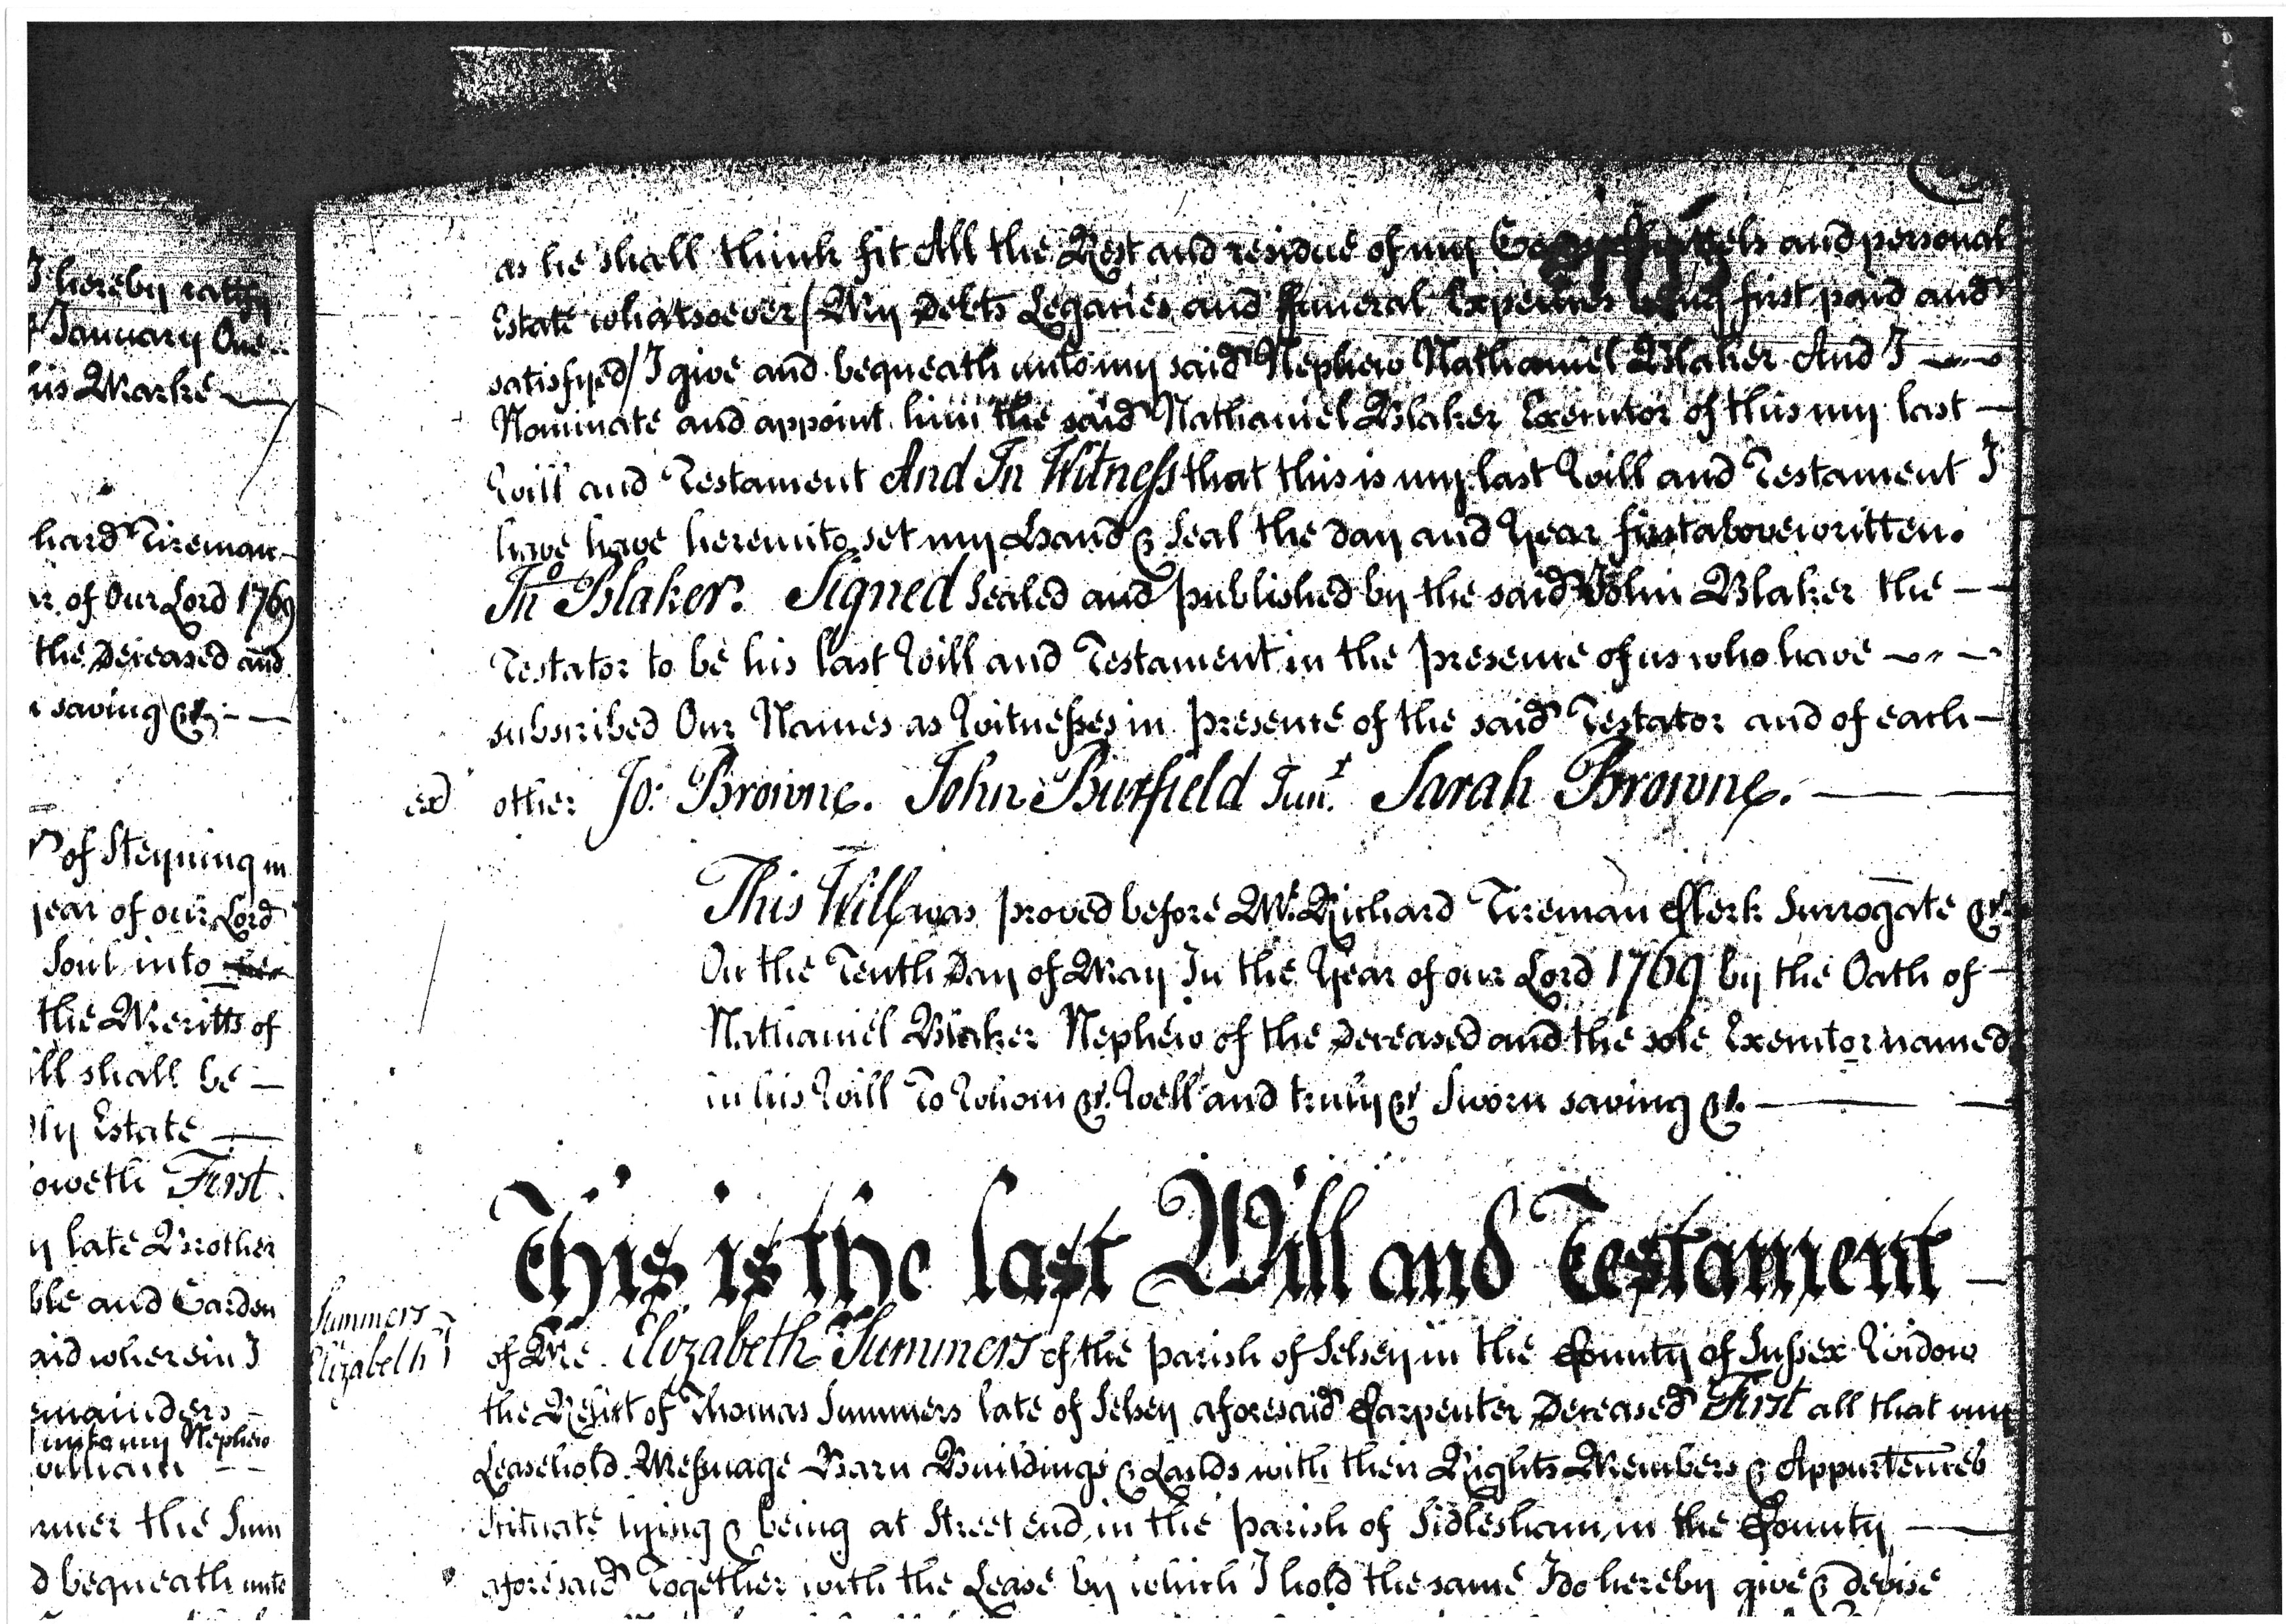 I hereby ratify
January One
his Marke
hard Tireman
of Our Lord 1769
the Deceased and
saving &c
of Steyning in
year of our Lord
Soul into
the Meritts of
ill shall be
My Estate
oweth First
y late Brother
ble and Garden
aid wherein I
emainders
unto my Nephew
william
rmer the Sum
d bequeath unto
as he shall think fit All the Rest and residue of my Goods Chattels and personal
Estate whatsoever (My Debts Legacies and Funeral Expences being first paid and
satisfyed) I give and bequeath unto my said Nephew Nathaniel Blaker And I
Nominate and appoint him the said Nathaniel Blaker Executor of this my last
Will and Testament And In Witness that this is my last Will and Testament I
have have hereunto set my Hand & Seal the Day and Year first above written.
Jno Blaker. Signed Sealed and published by the said John Blaker the
Testator to be his last Will and Testament in the Presence of us who have
subscribed Our Names as Witnesses in Presence of the said Testator and of each
exd other Jo: Browne. John Burfield Junr. Sarah Browne.
This Will was proved before Mr. Richard Tireman Clerk Surrogate &c
On the Tenth Day of May In the Year of our Lord 1769 by the Oath of
Nathaniel Blaker Nephew of the Deceased and the sole Executor named
in his Will To Whom &c. Well and truly &c Sworn saving &c.
This is the last Will and Testament
Summers
Elizabeth
of Me Elizabeth Summers of the Parish of Selsey in the County of Sussex Widow
the Relict of Thomas Summers late of Selsey aforesaid Carpenter Deceased First all that my
Leasehold Messuage Barn Buildings & Lands with their Rights Members & Appurtences
Scituate lying & being at Street end in the Parish of Sidlesham in the County
aforesaid Together with the Lease by which I hold the same I do hereby give & devise